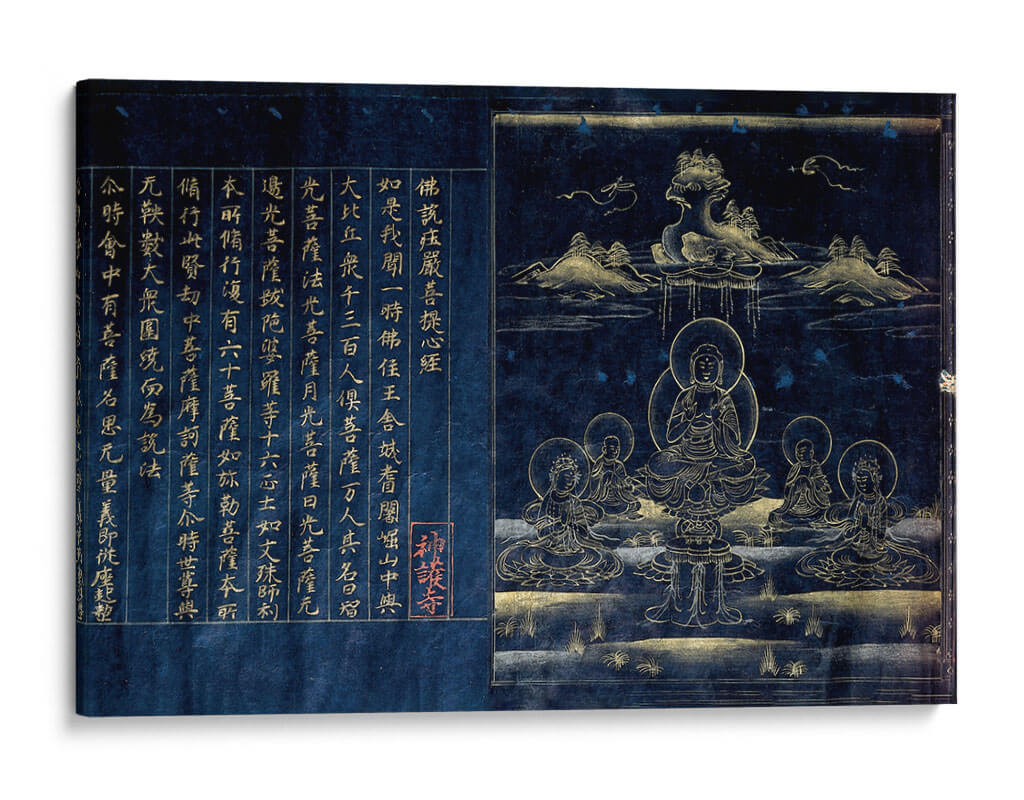 佛說庄嚴菩提心經
神護寺
如是我聞一時佛住王舍城耆闍崛山中與
大比丘衆千三百人俱菩薩万人其名曰智
光菩薩法光菩薩月光菩薩日光菩薩无
邊光菩薩跋陁婆羅等十六正士如文殊師利
本所脩行復有六十菩薩如弥勒菩薩本所
脩行此賢劫中菩薩摩訶薩等尒時世尊與
无鞅數大衆圍繞而為說法
尒時會中有菩薩名思无量義即從座起整